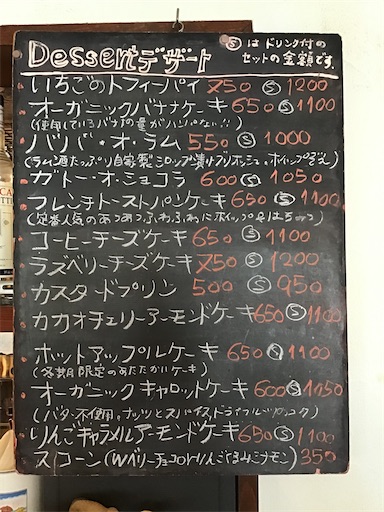 Dessertデザート
Ⓢはドリンク付の
セットの金額です。
いちごのトフィーパイ 750 Ⓢ 1200
オーガニックバナナケーキ 650 Ⓢ 1100
(使用しているバナナの量がハンパない!!)
ババ・オ・ラム 550 Ⓢ 1000
(ラム酒たっぷり自家製シロップ漬けブリオッシュ、ホイップ添え)
ガトー・オ・ショコラ 600 Ⓢ 1050
フレンチトーストパンケーキ 650 Ⓢ 1100
(定番人気のあつあつふわふわにホイップ&はちみつ)
コーヒーチーズケーキ 650 Ⓢ 1100
ラズベリーチーズケーキ 750 Ⓢ 1200
カスタードプリン 500 Ⓢ 950
カカオチェリーアーモンドケーキ 650 Ⓢ 1100
ホットアップルケーキ 650 Ⓢ 1100
(冬期限定のあたたかいケーキ)
オーガニックキャロットケーキ 600 Ⓢ 1050
(バター不使用。ナッツとスパイス、ドライフルーツ
りんごキャラメルアーモンドケーキ 650 Ⓢ 1100
スコーン(Wベリーチョコorりんごくるみシナモン) 350